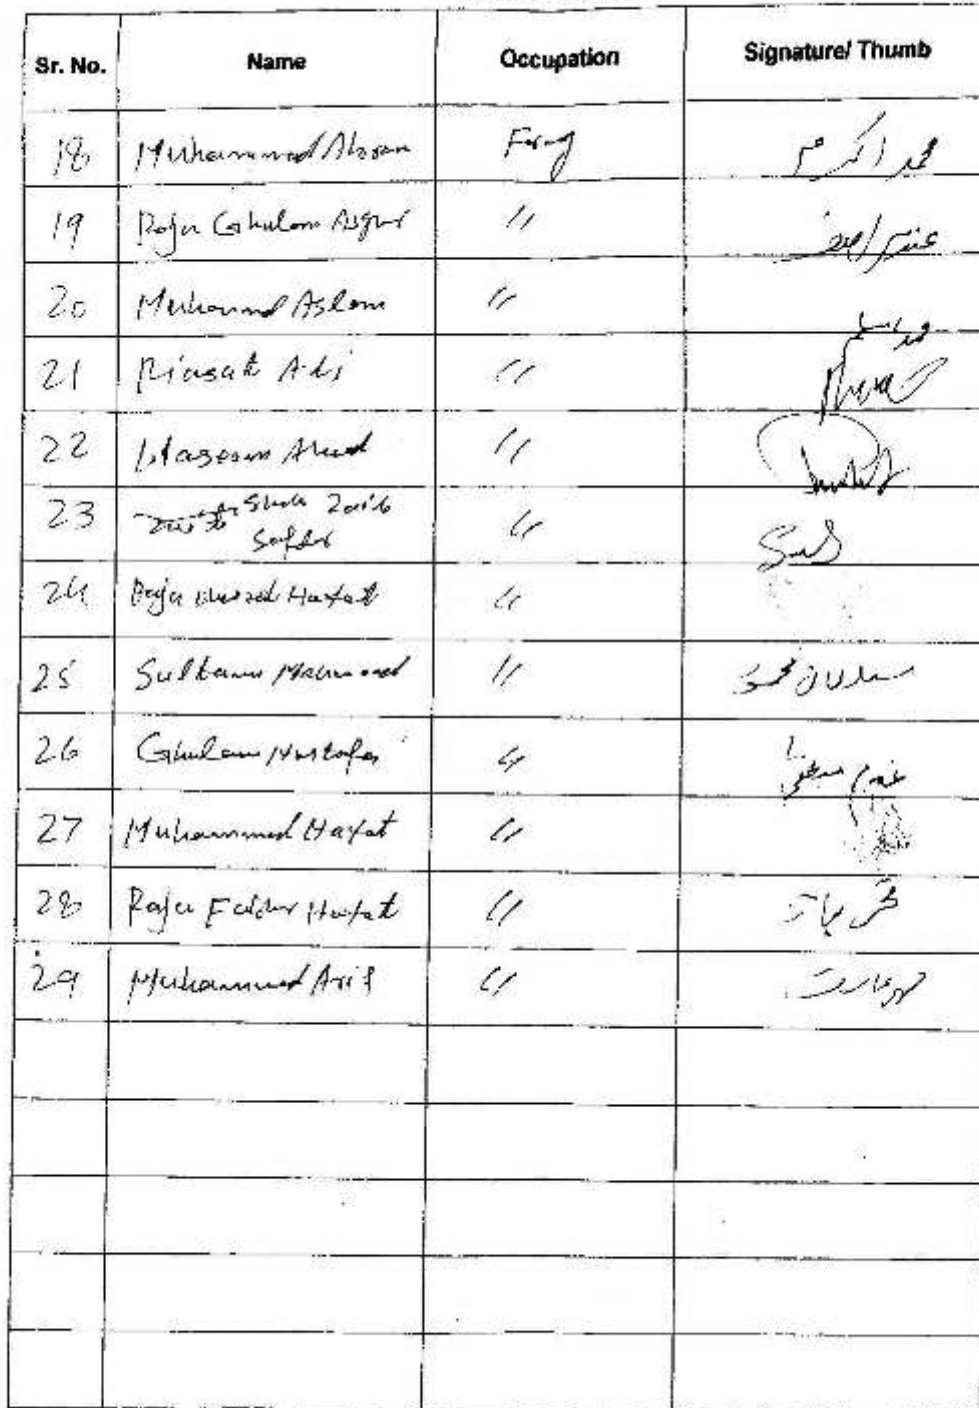 Sr. No. Name Occupation Signature/ Thumb
18 Muhammad Akram محمد اکرم
19 Raja Ghulam Asgar "
20 Muhammad Aslam " محمد اسلم
21 Riasat Ali "
22 Waseem Ahmed "
23 Shah Zaib "
Safdar
24 Raja Hayat "
25 Sultan Mahmood " سلطان محمود
26 Ghulam Mustafa " غلام مصطفی
27 Muhammad Hayat "
28 Raja Hayat "
29 Muhammad Arif " محمد عارف